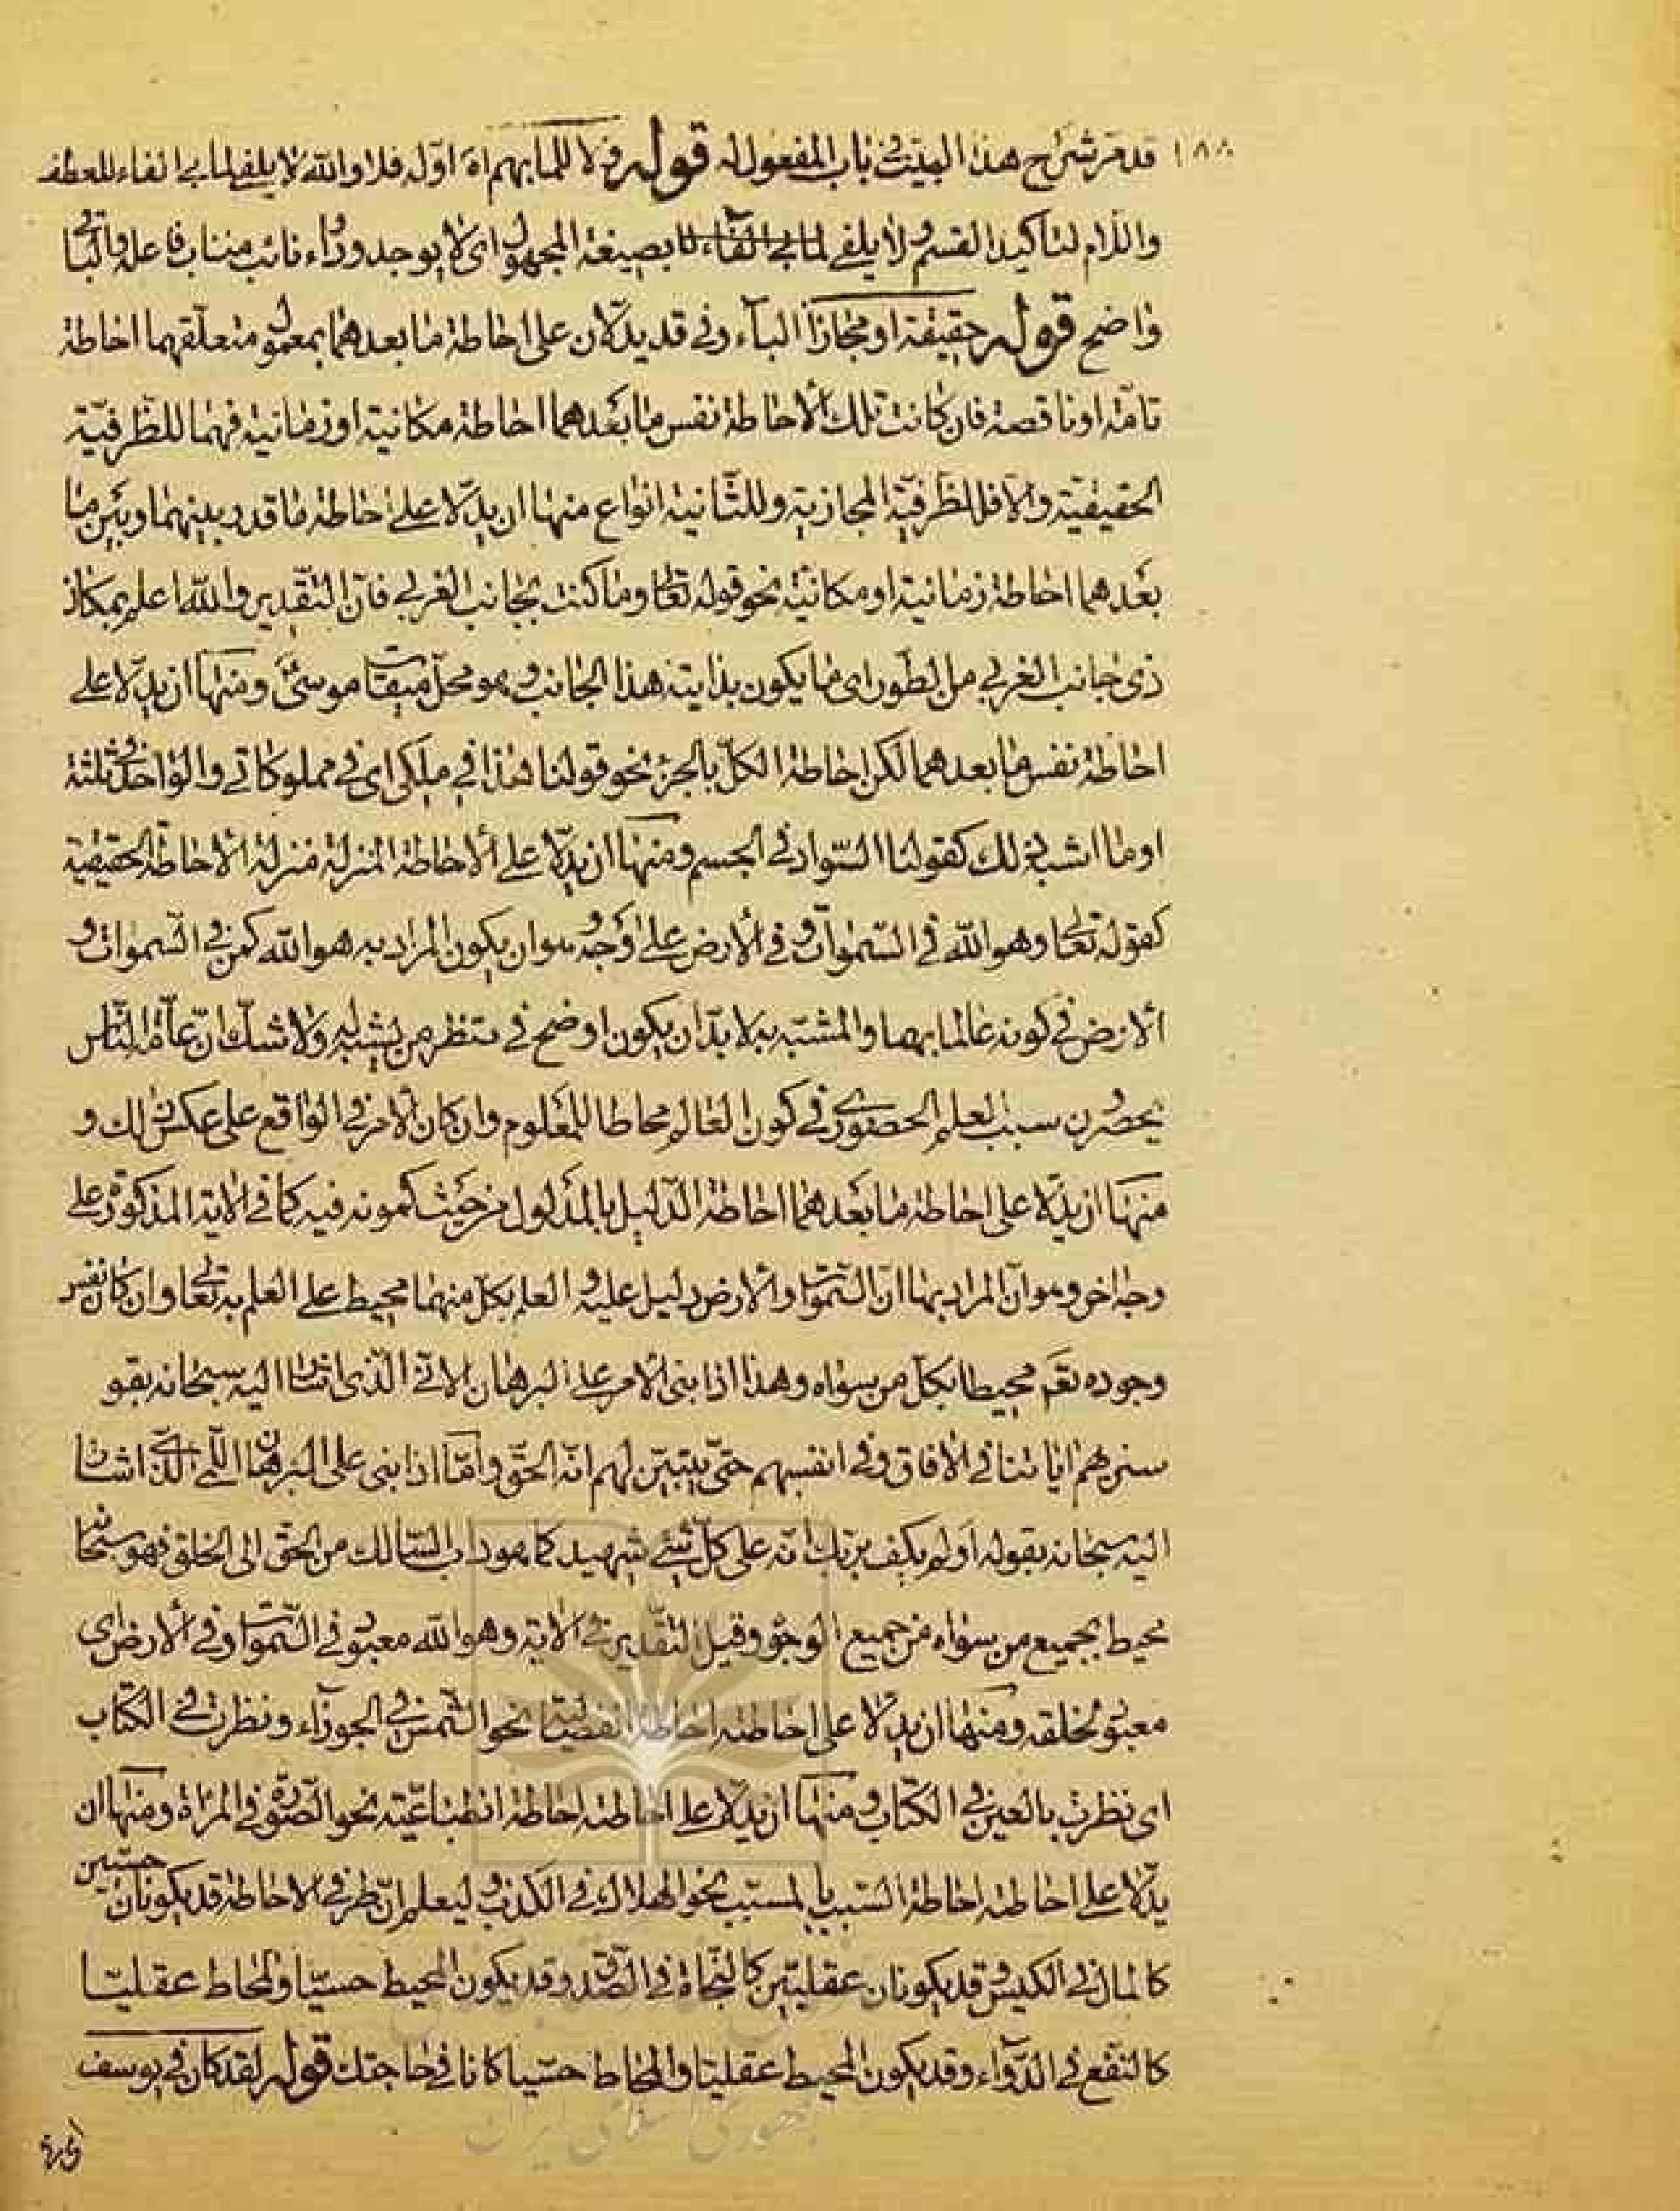 ١٨٨ قد مر شرح هذا البيت في باب المفعول له قوله ولا للما بهم اه اوّله فلا والله لا يلفى لما بي الفاء للعطف
واللام لتاكيد القسم ولا يلفى بصيغة المجهول اى لا يوجد ودواء نائب مناب فاعله والباقي
واضح قوله حقيقة او مجازا الباء وفي قد يدلان على احاطة ما بعدهما بمعمول متعلقهما احاطة
تامّة او ناقصة فان كانت تلك الاحاطة نفس ما بعدهما احاطة مكانية او زمانية فهما للظرفيّة
الحقيقيّة والا فللظرفيّة المجازية وللثّانية انواع منها ان يدلّا على احاطة ما قدر بينهما وبين ما
بعدهما احاطة زمانية او مكانيّة نحو قوله تعالى وما كنت بجانب الغربي فانّ التقدير والله اعلم بمكان
ذى جانب الغربي من الطّور اى ما يكون بدايته هذا الجانب وهو محلّ ميقات موسى ومنها ان يدلّا على
احاطة نفس ما بعدهما لكن احاطة الكلّ بالجزء نحو قولنا هذا في ملكي اى في مملوكاتي والواحد في ثلثة
او ما اشبه ذلك كقولنا السّواد في الجسم ومنها ان يدلّا على الاحاطة المنزلة منزلة الاحاطة الحقيقية
كقوله تعالى وهو الله في السّموات وفي الارض على وجه وهو ان يكون المراد به هو الله كمن في السّموات و
الارض في كونه عالما بهما والمشبّه به لا بدّ ان يكون اوضح في نظر من يشبه ولا شك انّ عامّة النّاس
يحضرن سبب العلم الحضوري في كون العالم محاطا للمعلوم وان كان الامر في الواقع على عكس ذلك و
منها ان يدلّا على احاطة ما بعدهما احاطة الدّليل بالمدلول من حيث كمونه فيه كما في الاية المذكورة على
وجه اخر وهو انّ المراد بها انّ السّموات والارض دليل عليه و العلم بكلّ منهما محيط على العلم به تعالى وان كان نفس
وجوده تعم محيطا بكلّ من سواه وهذا اذا بنى الامر على البرهان الانّي الّذى اشار اليه سبحانه بقو
سنريهم اياتنا في الافاق وفي انفسهم حتّى يتبيّن لهم انّه الحقّ وامّا اذا بنى على البرهان اللّمّي الّذى اشار
اليه سبحانه بقوله اولم يكف بربك انّه على كلّ شئ شهيد كما هو داب السّالك من الحقّ الى الخلق فهو سبحانه
محيط بجميع من سواه من جميع الوجوه وقيل التقدير في الاية وهو الله معبود في السّموات وفي الارض اى
معبود لخلقه ومنها ان يدلّا على احاطته احاطة نحو الشّمس في الجوزاء ونظرت في الكتاب
اى نظرت بالعين في الكتاب ومنها ان يدلّا على احاطته احاطة انطباعيّة نحو الصّورة في المراة ومنها ان
يدلّا على احاطته احاطة السّبب بالمسبّب نحو الهلاك في الكذب وليعلم انّ طرفي الاحاطة قد يكونان حسّيين
كالمال في الكيس وقد يكونان عقليّين كالنّجاة في الصّدق وقد يكون المحيط حسيّا والمحاط عقليّا
كالنّفع في الدّواء وقد يكون المحيط عقليّا والمحاط حسّيا كانا في حاجتك قوله لقد كان في يوسف